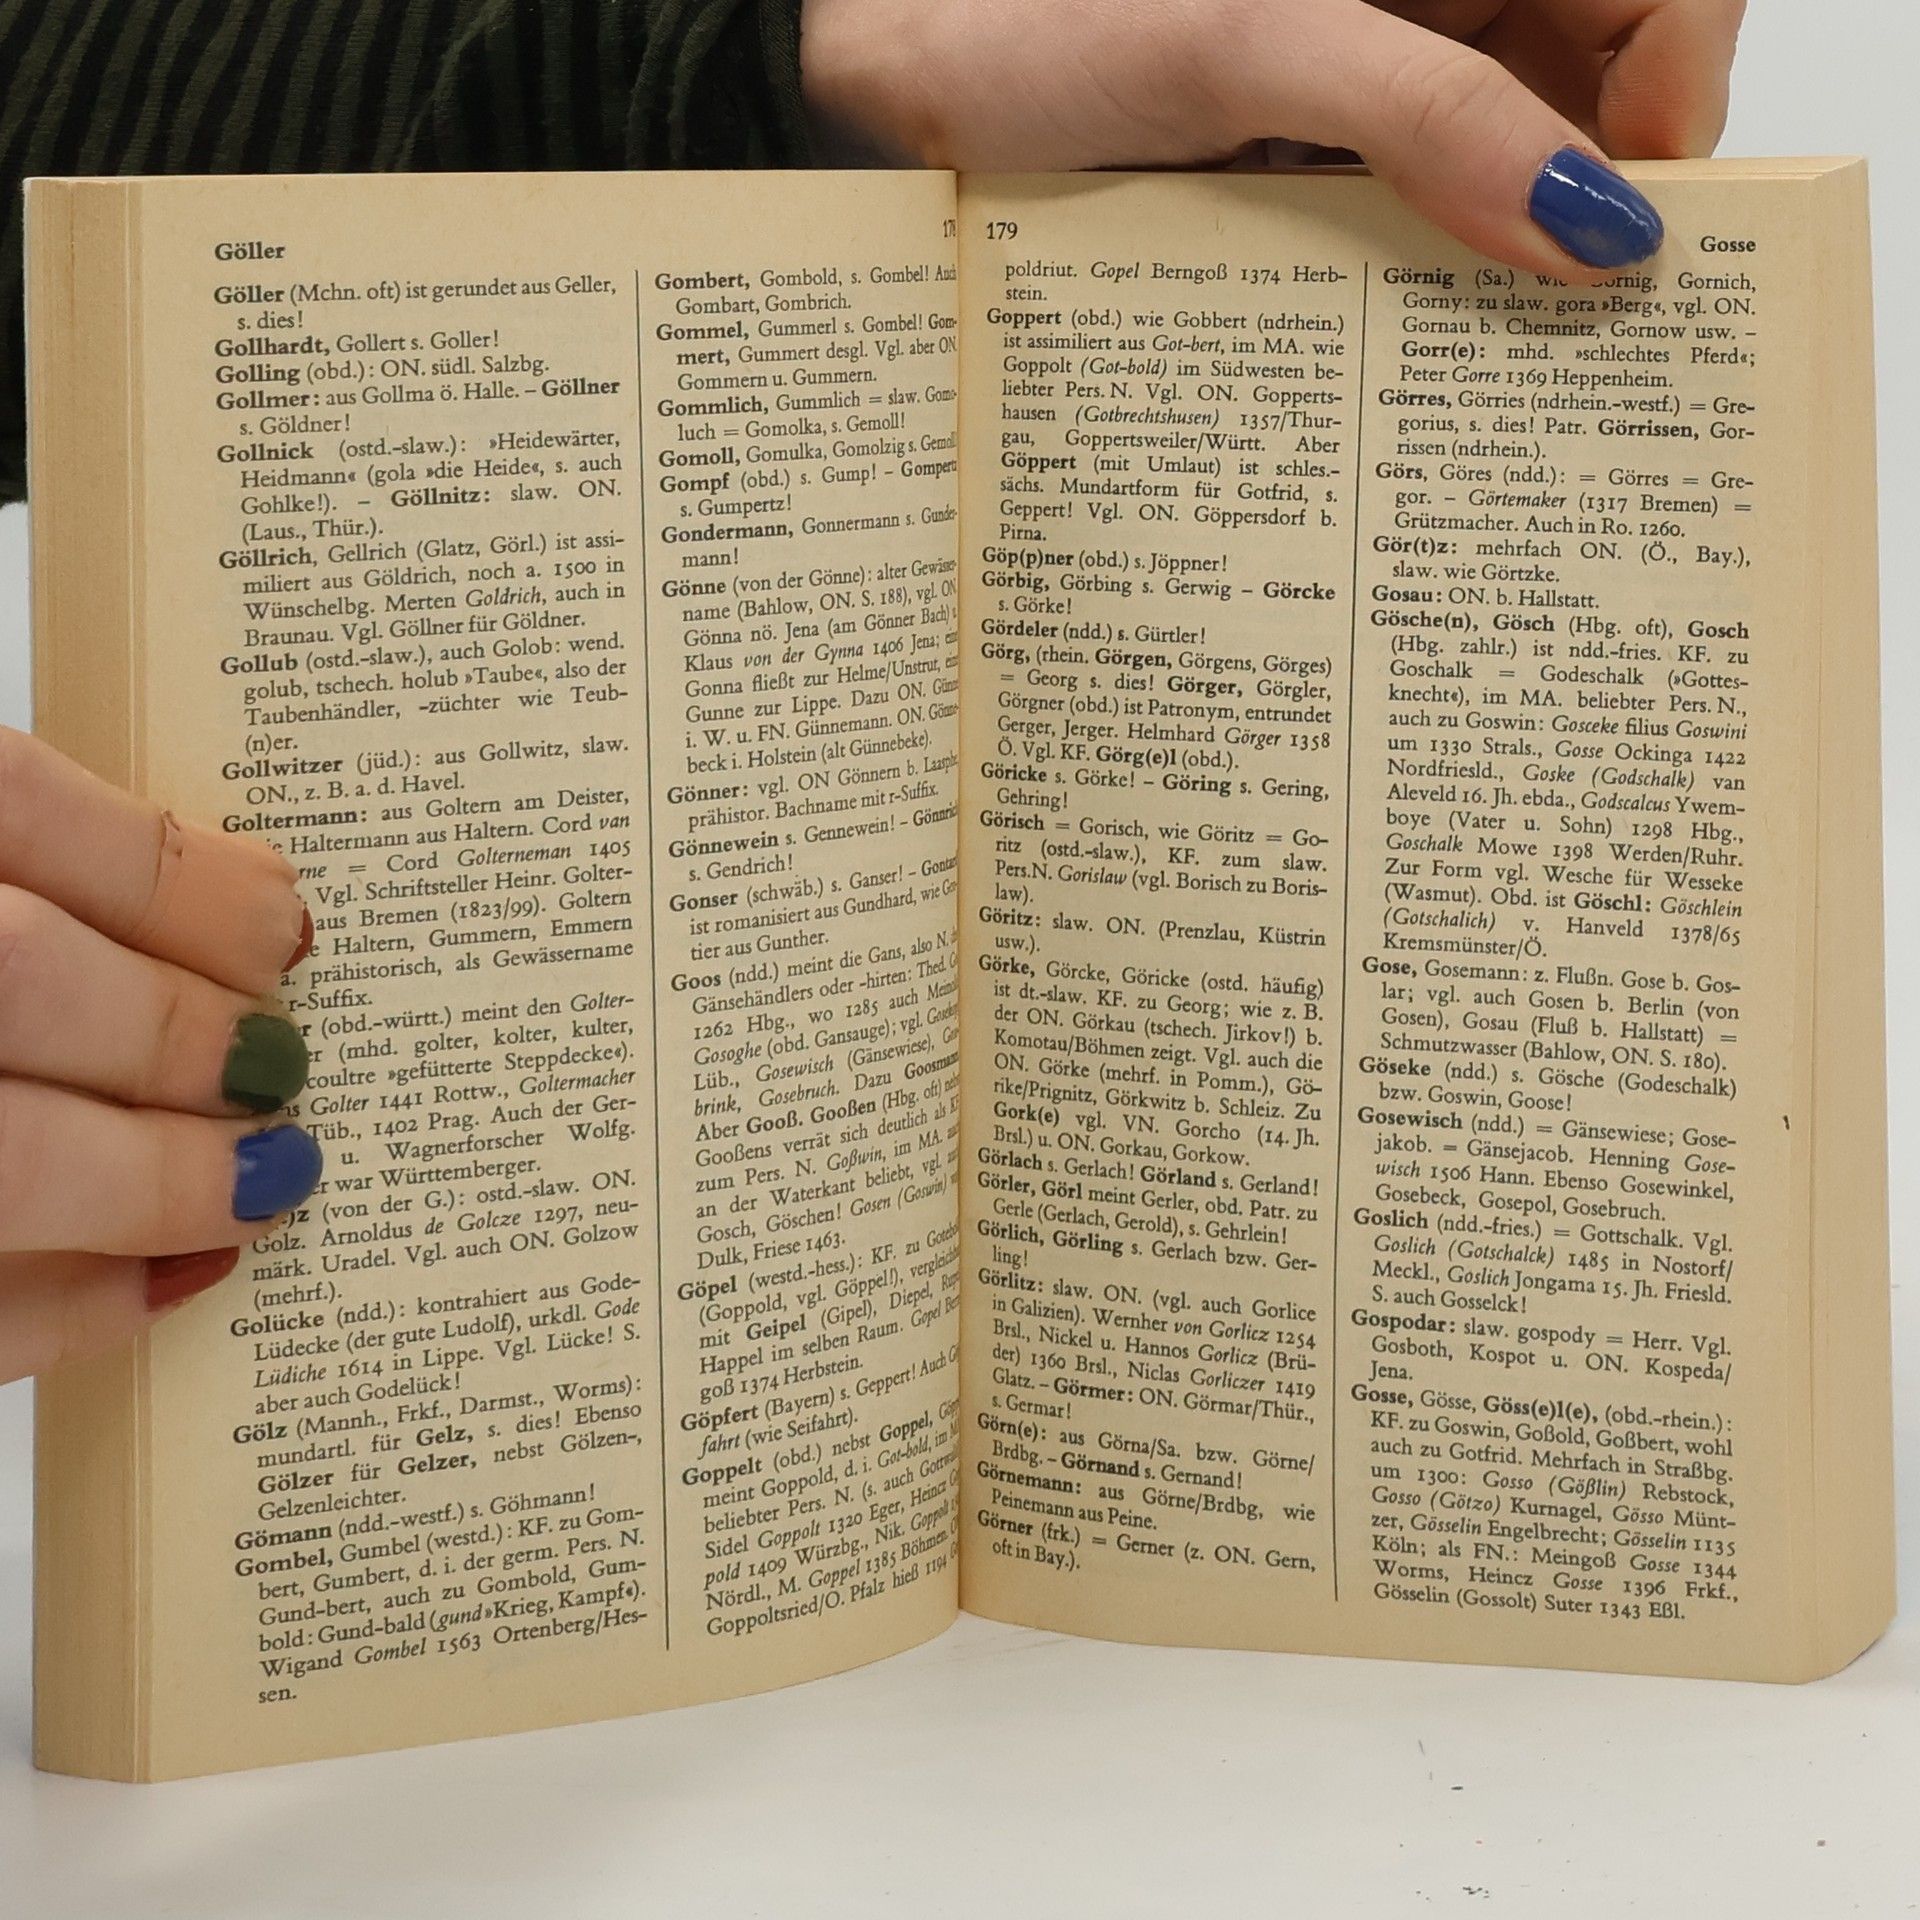 Göller
Göller (Mchn. oft) ist gerundet aus Geller,
s. dies!
Gollhardt, Gollert s. Goller!
Golling (obd.): ON. südl. Salzbg.
Gollmer: aus Gollma ö. Halle. – Göllner
s. Göldner!
Gollnick (ostd.-slaw.): »Heidewärter,
Heidmann« (gola »die Heide«, s. auch
Gohlke!). – Göllnitz: slaw. ON.
(Laus., Thür.).
Göllrich, Gellrich (Glatz, Görl.) ist assi-
miliert aus Göldrich, noch a. 1500 in
Wünschelbg. Merten Goldrich, auch in
Braunau. Vgl. Göllner für Göldner.
Gollub (ostd.-slaw.), auch Golob: wend.
golub, tschech. holub »Taube«, also der
Taubenhändler, -züchter wie Teub-
(n)er.
Gollwitzer (jüd.): aus Gollwitz, slaw.
ON., z. B. a. d. Havel.
Goltermann: aus Goltern am Deister,
Haltermann aus Haltern. Cord van
= Cord Golterneman 1405
Vgl. Schriftsteller Heinr. Golter-
aus Bremen (1823/99). Goltern
Haltern, Gummern, Emmern
a. prähistorisch, als Gewässername
r-Suffix.
(obd.-württ.) meint den Golter-
(mhd. golter, kolter, kulter,
coultre »gefütterte Steppdecke«).
Golter 1441 Rottw., Goltermacher
Tüb., 1402 Prag. Auch der Ger-
u. Wagnerforscher Wolfg.
war Württemberger.
(von der G.): ostd.-slaw. ON.
Golz. Arnoldus de Golcze 1297, neu-
märk. Uradel. Vgl. auch ON. Golzow
(mehrf.).
Golücke (ndd.): kontrahiert aus Gode-
Lüdecke (der gute Ludolf), urkdl. Gode
Lüdiche 1614 in Lippe. Vgl. Lücke! S.
aber auch Godelück!
Gölz (Mannh., Frkf., Darmst., Worms):
mundartl. für Gelz, s. dies! Ebenso
Gölzer für Gelzer, nebst Gölzen-,
Gelzenleichter.
Gömann (ndd.-westf.) s. Göhmann!
Gombel, Gumbel (westd.): KF. zu Gom-
bert, Gumbert, d. i. der germ. Pers. N.
Gund-bert, auch zu Gombold, Gum-
bold: Gund-bald (gund »Krieg, Kampf«).
Wigand Gombel 1563 Ortenberg/Hes-
sen.
178
Gombert, Gombold, s. Gombel! Auch
Gombart, Gombrich.
Gommel, Gummerl s. Gombel! Gom-
mert, Gummert desgl. Vgl. aber ON.
Gommern u. Gummern.
Gommlich, Gummlich = slaw. Gomo-
luch = Gomolka, s. Gemoll!
Gomoll, Gomulka, Gomolzig s. Gemoll
Gompf (obd.) s. Gump! – Gompertz
s. Gumpertz!
Gondermann, Gonnermann s. Gunder-
mann!
Gönne (von der Gönne): alter Gewässer-
name (Bahlow, ON. S. 188), vgl. ON
Gönna nö. Jena (am Gönner Bach)
Klaus von der Gynna 1406 Jena;
Gonna fließt zur Helme/Unstrut,
Gunne zur Lippe. Dazu ON.
i. W. u. FN. Günnemann. ON. Gönne-
beck i. Holstein (alt Günnebeke).
Gönner: vgl. ON Gönnern b. Laasphe
prähistor. Bachname mit r-Suffix.
Gönnewein s. Gennewein! – Gönnrich
s. Gendrich!
Gonser (schwäb.) s. Ganser! –
ist romanisiert aus Gundhard, wie
tier aus Gunther.
Goos (ndd.) meint die Gans, also N.
Gänsehändlers oder -hirten: Thed.
1262 Hbg., wo 1285 auch
Gosoghe (obd. Gansauge); vgl.
Lüb., Gosewisch (Gänsewiese),
brink, Gosebruch. Dazu Goosmann
Aber Gooß. Gooßen (Hbg. oft)
Gooßens verrät sich deutlich als
zum Pers. N. Goßwin, im MA.
an der Waterkant beliebt, vgl.
Gosch, Göschen! Gosen (Goswin)
Dulk, Friese 1463.
Göpel (westd.-hess.): KF. zu
(Goppold, vgl. Göppel!),
mit Geipel (Gipel), Diepel,
Happel im selben Raum. Gopel
goß 1374 Herbstein.
Göpfert (Bayern) s. Geppert! Auch
fahrt (wie Seifahrt).
Goppelt (obd.) nebst Goppel,
meint Goppold, d. i. Got-bold, im
beliebter Pers. N. (s. auch
Sidel Goppolt 1320 Eger, Heincz
pold 1409 Würzbg., Nik. Goppolt
Nördl., M. Goppel 1385 Böhmen.
Goppoltsried/O. Pfalz hieß 1194
179
Gosse
poldriut. Gopel Berngoß 1374 Herb-
stein.
Goppert (obd.) wie Gobbert (ndrhein.)
ist assimiliert aus Got-bert, im MA. wie
Goppolt (Got-bold) im Südwesten be-
liebter Pers. N. Vgl. ON. Gopperts-
hausen (Gotbrechtshusen) 1357/Thur-
gau, Goppertsweiler/Württ. Aber
Göppert (mit Umlaut) ist schles.-
sächs. Mundartform für Gotfrid, s.
Geppert! Vgl. ON. Göppersdorf b.
Pirna.
Göp(p)ner (obd.) s. Jöppner!
Görbig, Görbing s. Gerwig – Görcke
s. Görke!
Gördeler (ndd.) s. Gürtler!
Görg, (rhein. Görgen, Görgens, Görges)
= Georg s. dies! Görger, Görgler,
Görgner (obd.) ist Patronym, entrundet
Gerger, Jerger. Helmhard Görger 1358
Ö. Vgl. KF. Görg(e)l (obd.).
Göricke s. Görke! – Göring s. Gering,
Gehring!
Görisch = Gorisch, wie Göritz = Go-
ritz (ostd.-slaw.), KF. zum slaw.
Pers.N. Gorislaw (vgl. Borisch zu Boris-
law).
Göritz: slaw. ON. (Prenzlau, Küstrin
usw.).
Görke, Görcke, Göricke (ostd. häufig)
ist dt.-slaw. KF. zu Georg; wie z. B.
der ON. Görkau (tschech. Jirkov!) b.
Komotau/Böhmen zeigt. Vgl. auch die
ON. Görke (mehrf. in Pomm.), Gö-
rike/Prignitz, Görkwitz b. Schleiz. Zu
Gork(e) vgl. VN. Gorcho (14. Jh.
Brsl.) u. ON. Gorkau, Gorkow.
Görlach s. Gerlach! Görland s. Gerland!
Görler, Görl meint Gerler, obd. Patr. zu
Gerle (Gerlach, Gerold), s. Gehrlein!
Görlich, Görling s. Gerlach bzw. Ger-
ling!
Görlitz: slaw. ON. (vgl. auch Gorlice
in Galizien). Wernher von Gorlicz 1254
Brsl., Nickel u. Hannos Gorlicz (Brü-
der) 1360 Brsl., Niclas Gorliczer 1419
Glatz. – Görmer: ON. Görmar/Thür.,
s. Germar!
Görn(e): aus Görna/Sa. bzw. Görne/
Brdbg. – Görnand s. Gernand!
Görnemann: aus Görne/Brdbg, wie
Peinemann aus Peine.
Görner (frk.) = Gerner (z. ON. Gern,
oft in Bay.).
Görnig (Sa.) wie Gornich,
Gorny: zu slaw. gora »Berg«, vgl. ON.
Gornau b. Chemnitz, Gornow usw. –
Gorr(e): mhd. »schlechtes Pferd«;
Peter Gorre 1369 Heppenheim.
Görres, Görries (ndrhein.-westf.) = Gre-
gorius, s. dies! Patr. Görrissen, Gor-
rissen (ndrhein.).
Görs, Göres (ndd.): = Görres = Gre-
gor. – Görtemaker (1317 Bremen) =
Grützmacher. Auch in Ro. 1260.
Gör(t)z: mehrfach ON. (Ö., Bay.),
slaw. wie Görtzke.
Gosau: ON. b. Hallstatt.
Gösche(n), Gösch (Hbg. oft), Gosch
(Hbg. zahlr.) ist ndd.-fries. KF. zu
Goschalk = Godeschalk (»Gottes-
knecht«), im MA. beliebter Pers. N.,
auch zu Goswin: Gosceke filius Goswini
um 1330 Strals., Gosse Ockinga 1422
Nordfriesld., Goske (Godschalk) van
Aleveld 16. Jh. ebda., Godscalcus Ywem-
boye (Vater u. Sohn) 1298 Hbg.,
Goschalk Mowe 1398 Werden/Ruhr.
Zur Form vgl. Wesche für Wesseke
(Wasmut). Obd. ist Göschl: Göschlein
(Gotschalich) v. Hanveld 1378/65
Kremsmünster/Ö.
Gose, Gosemann: z. Flußn. Gose b. Gos-
lar; vgl. auch Gosen b. Berlin (von
Gosen), Gosau (Fluß b. Hallstatt) =
Schmutzwasser (Bahlow, ON. S. 180).
Göseke (ndd.) s. Gösche (Godeschalk)
bzw. Goswin, Goose!
Gosewisch (ndd.) = Gänsewiese; Gose-
jakob. = Gänsejacob. Henning Gose-
wisch 1506 Hann. Ebenso Gosewinkel,
Gosebeck, Gosepol, Gosebruch.
Goslich (ndd.-fries.) = Gottschalk. Vgl.
Goslich (Gotschalck) 1485 in Nostorf/
Meckl., Goslich Jongama 15. Jh. Friesld.
S. auch Gosselck!
Gospodar: slaw. gospody = Herr. Vgl.
Gosboth, Kospot u. ON. Kospeda/
Jena.
Gosse, Gösse, Göss(e)l(e), (obd.-rhein.):
KF. zu Goswin, Goßold, Goßbert, wohl
auch zu Gotfrid. Mehrfach in Straßbg.
um 1300: Gosso (Gößlin) Rebstock,
Gosso (Götzo) Kurnagel, Gösso Münt-
zer, Gösselin Engelbrecht; Gösselin 1135
Köln; als FN.: Meingoß Gosse 1344
Worms, Heincz Gosse 1396 Frkf.,
Gösselin (Gossolt) Suter 1343 Eßl.